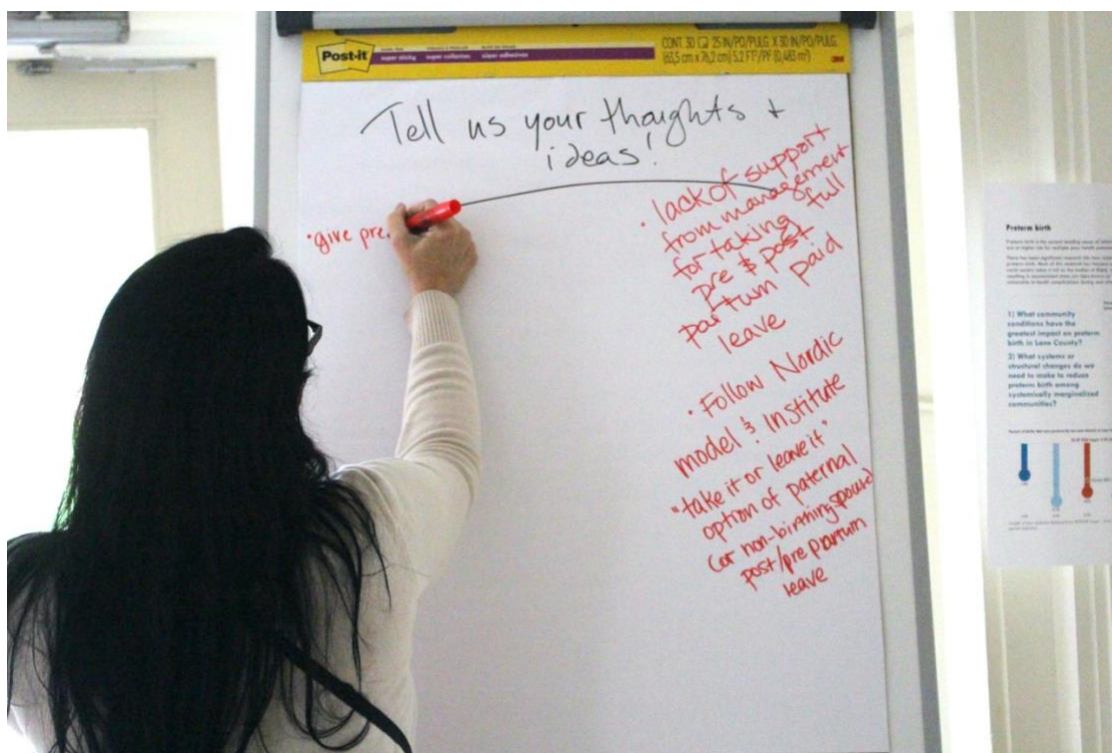 Post-it
super sticky
super collantes
súper adhesivas
CONT. 30 25 IN/PO/PULG. X 30 IN/PO/PULG.
(63,5 cm x 76,2 cm) 5.2 FT²/PI² (0,483 m²)
3M
Tell us your thoughts +
ideas!
• give pre
• lack of support
from management
for taking full
pre & post
partum paid
leave
• Follow Nordic
model & Institute
"take it or leave it"
option of paternal
(or non-birthing spouse)
post/pre partum
leave
Preterm birth
1) What community
conditions have the
greatest impact on preterm
birth in Lane County?
2) What systems or
structural changes do we
need to make to reduce
preterm birth among
systemically marginalized
communities?